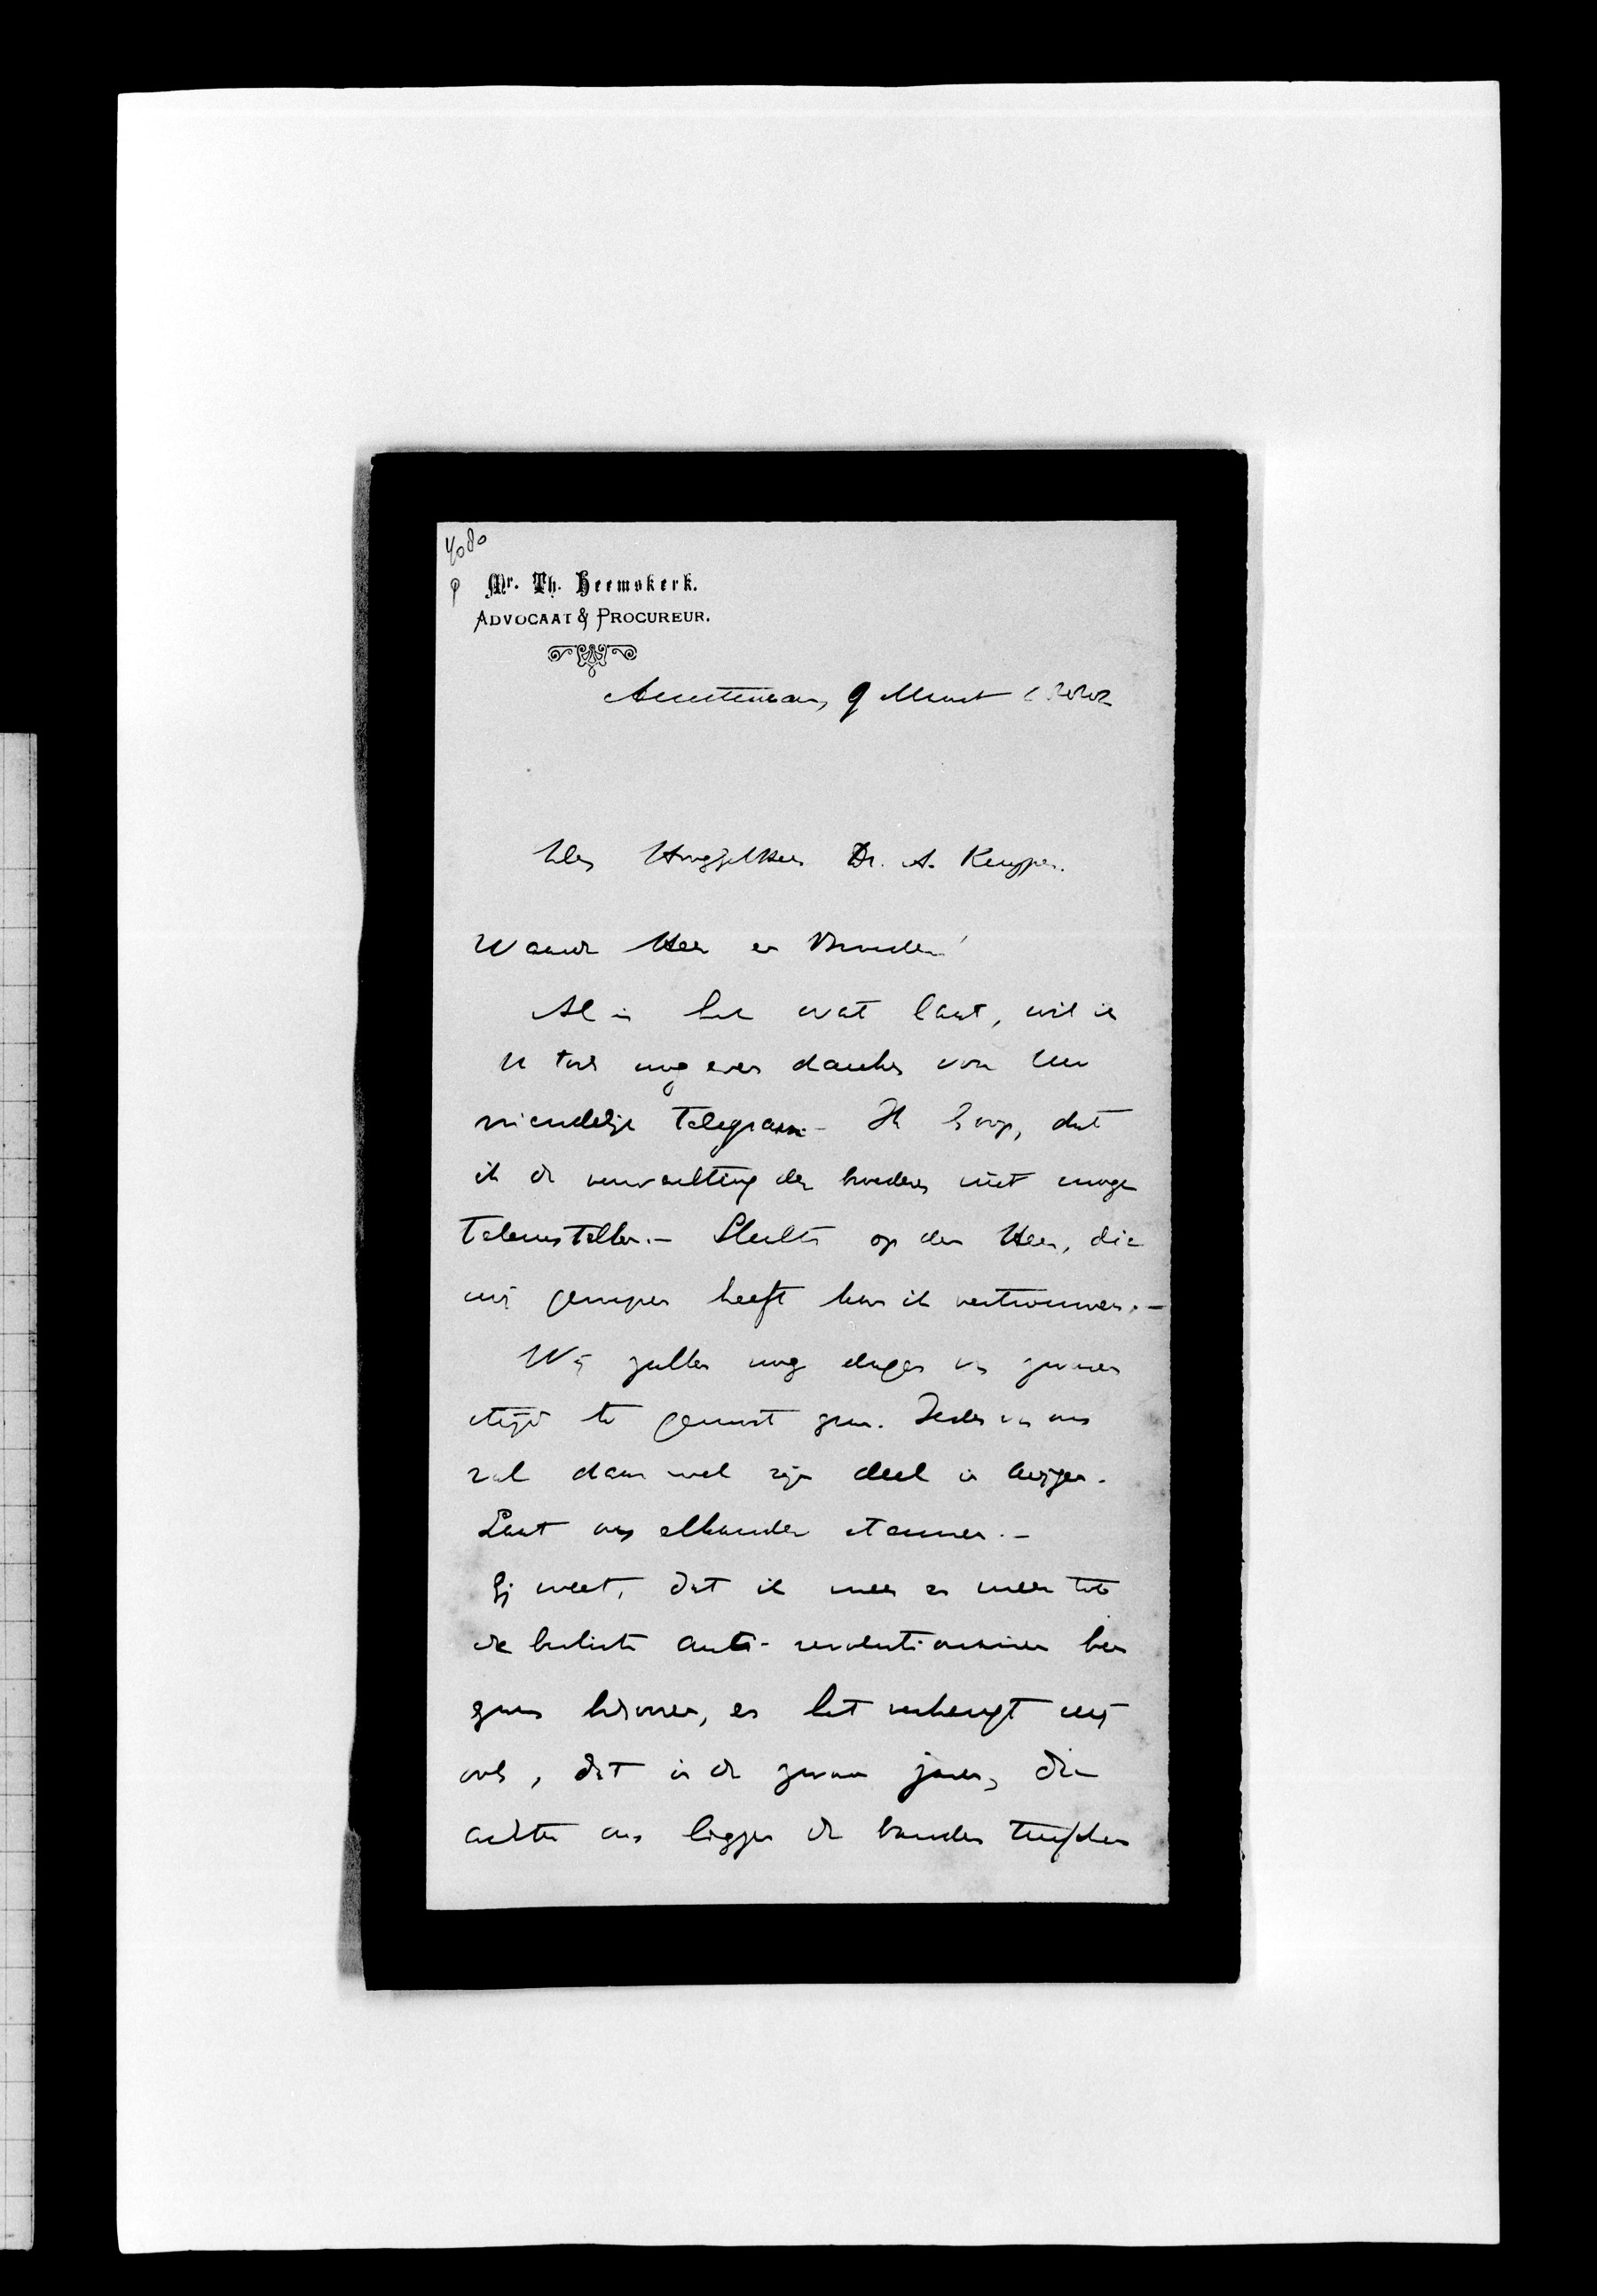 4080
Mr. Th. Heemskerk.
ADVOCAAT & PROCUREUR.
Amsterdam, 9 Maart 1888
Den Hooggel Heer Dr. A. Kuyper.
Waarde Heer en Broeder!
Al is het wat laat, wil ik
U toch nog even danken voor Uw
vriendelijk telegram. Ik hoop, dat
ik de verwachting der broeders niet moge
teleurstellen. – Slechts op den Heer, die
mij geroepen heeft kan ik vertrouwen. –
Wij zullen nog dagen van zwaren
strijd te gemoet gaan. Ieder van ons
zal daar wel zijn deel in krijgen.
Laat ons elkander steunen. –
Gij weet, dat ik meer en meer tot
de besliste anti-revolutionairen ben
gaan behooren, en het verheugt mij
ook, dat in de zware jaren, die
achter ons liggen de banden tusschen